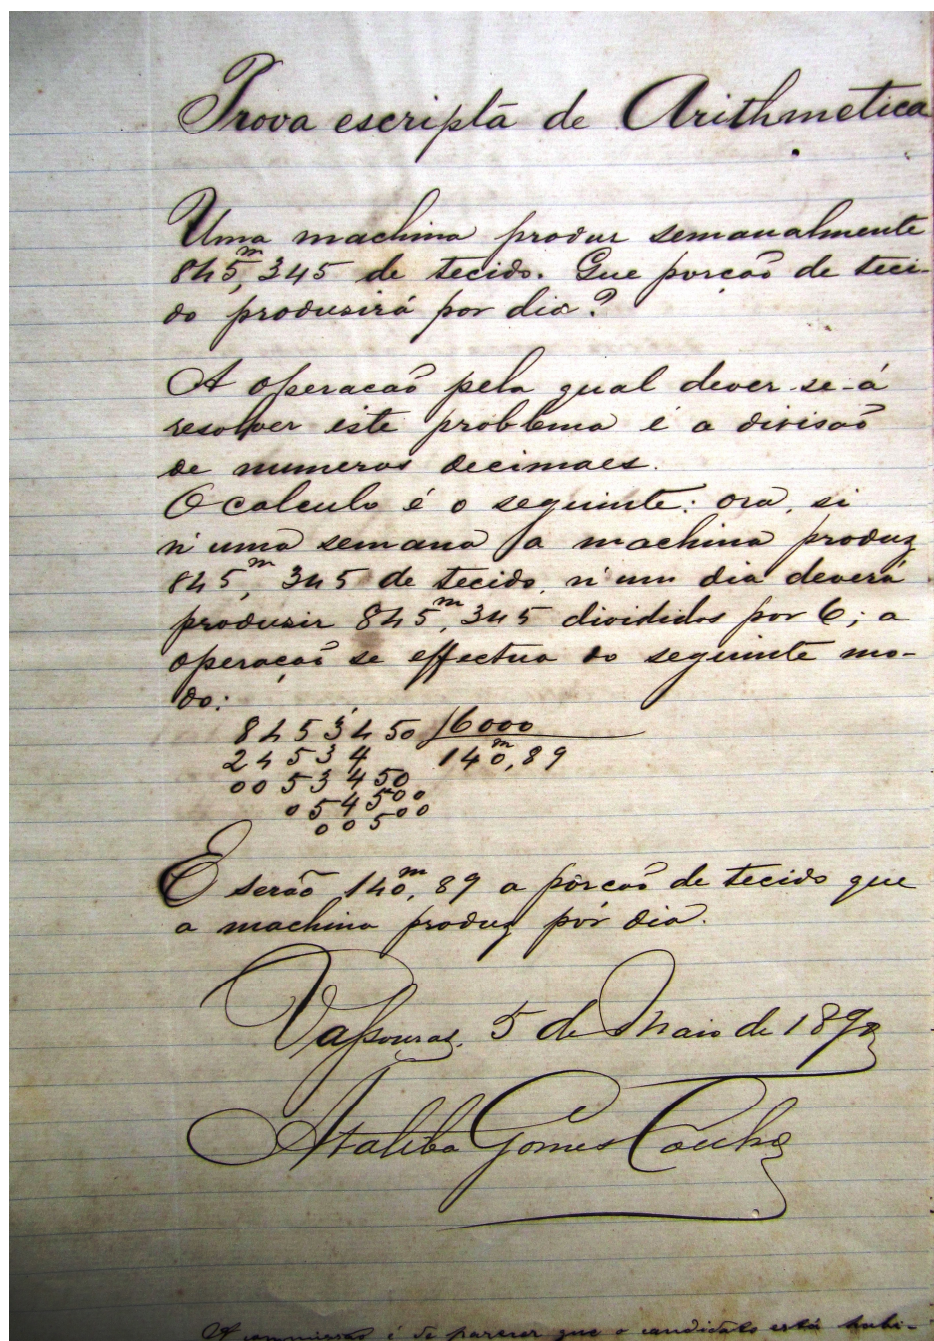 Prova escripta de Arithmetica
Uma machina produz semanalmente
845,m345 de tecido. Que porção de teci-
do produsirá por dia?
A operacaõ pela qual dever-se-á
resolver este problema é a divisaõ
de numeros decimaes.
O calculo é o seguinte: ora, si
n'uma semana a machina produz
845,m345 de tecido, n'um dia deverá
produsir 845,m345 divididos por 6; a
operaçaõ se effectua do seguinte mo-
do:
8453450 |6000
24534 140,m89
0053450
054500
00500
E serão 140,m89 a porcaõ de tecido que
a machina produz por dia.
Vassouras, 5 de Maio de 189
Ataliba Gomes
A commissaõ é de parecer que o candidato está habi-